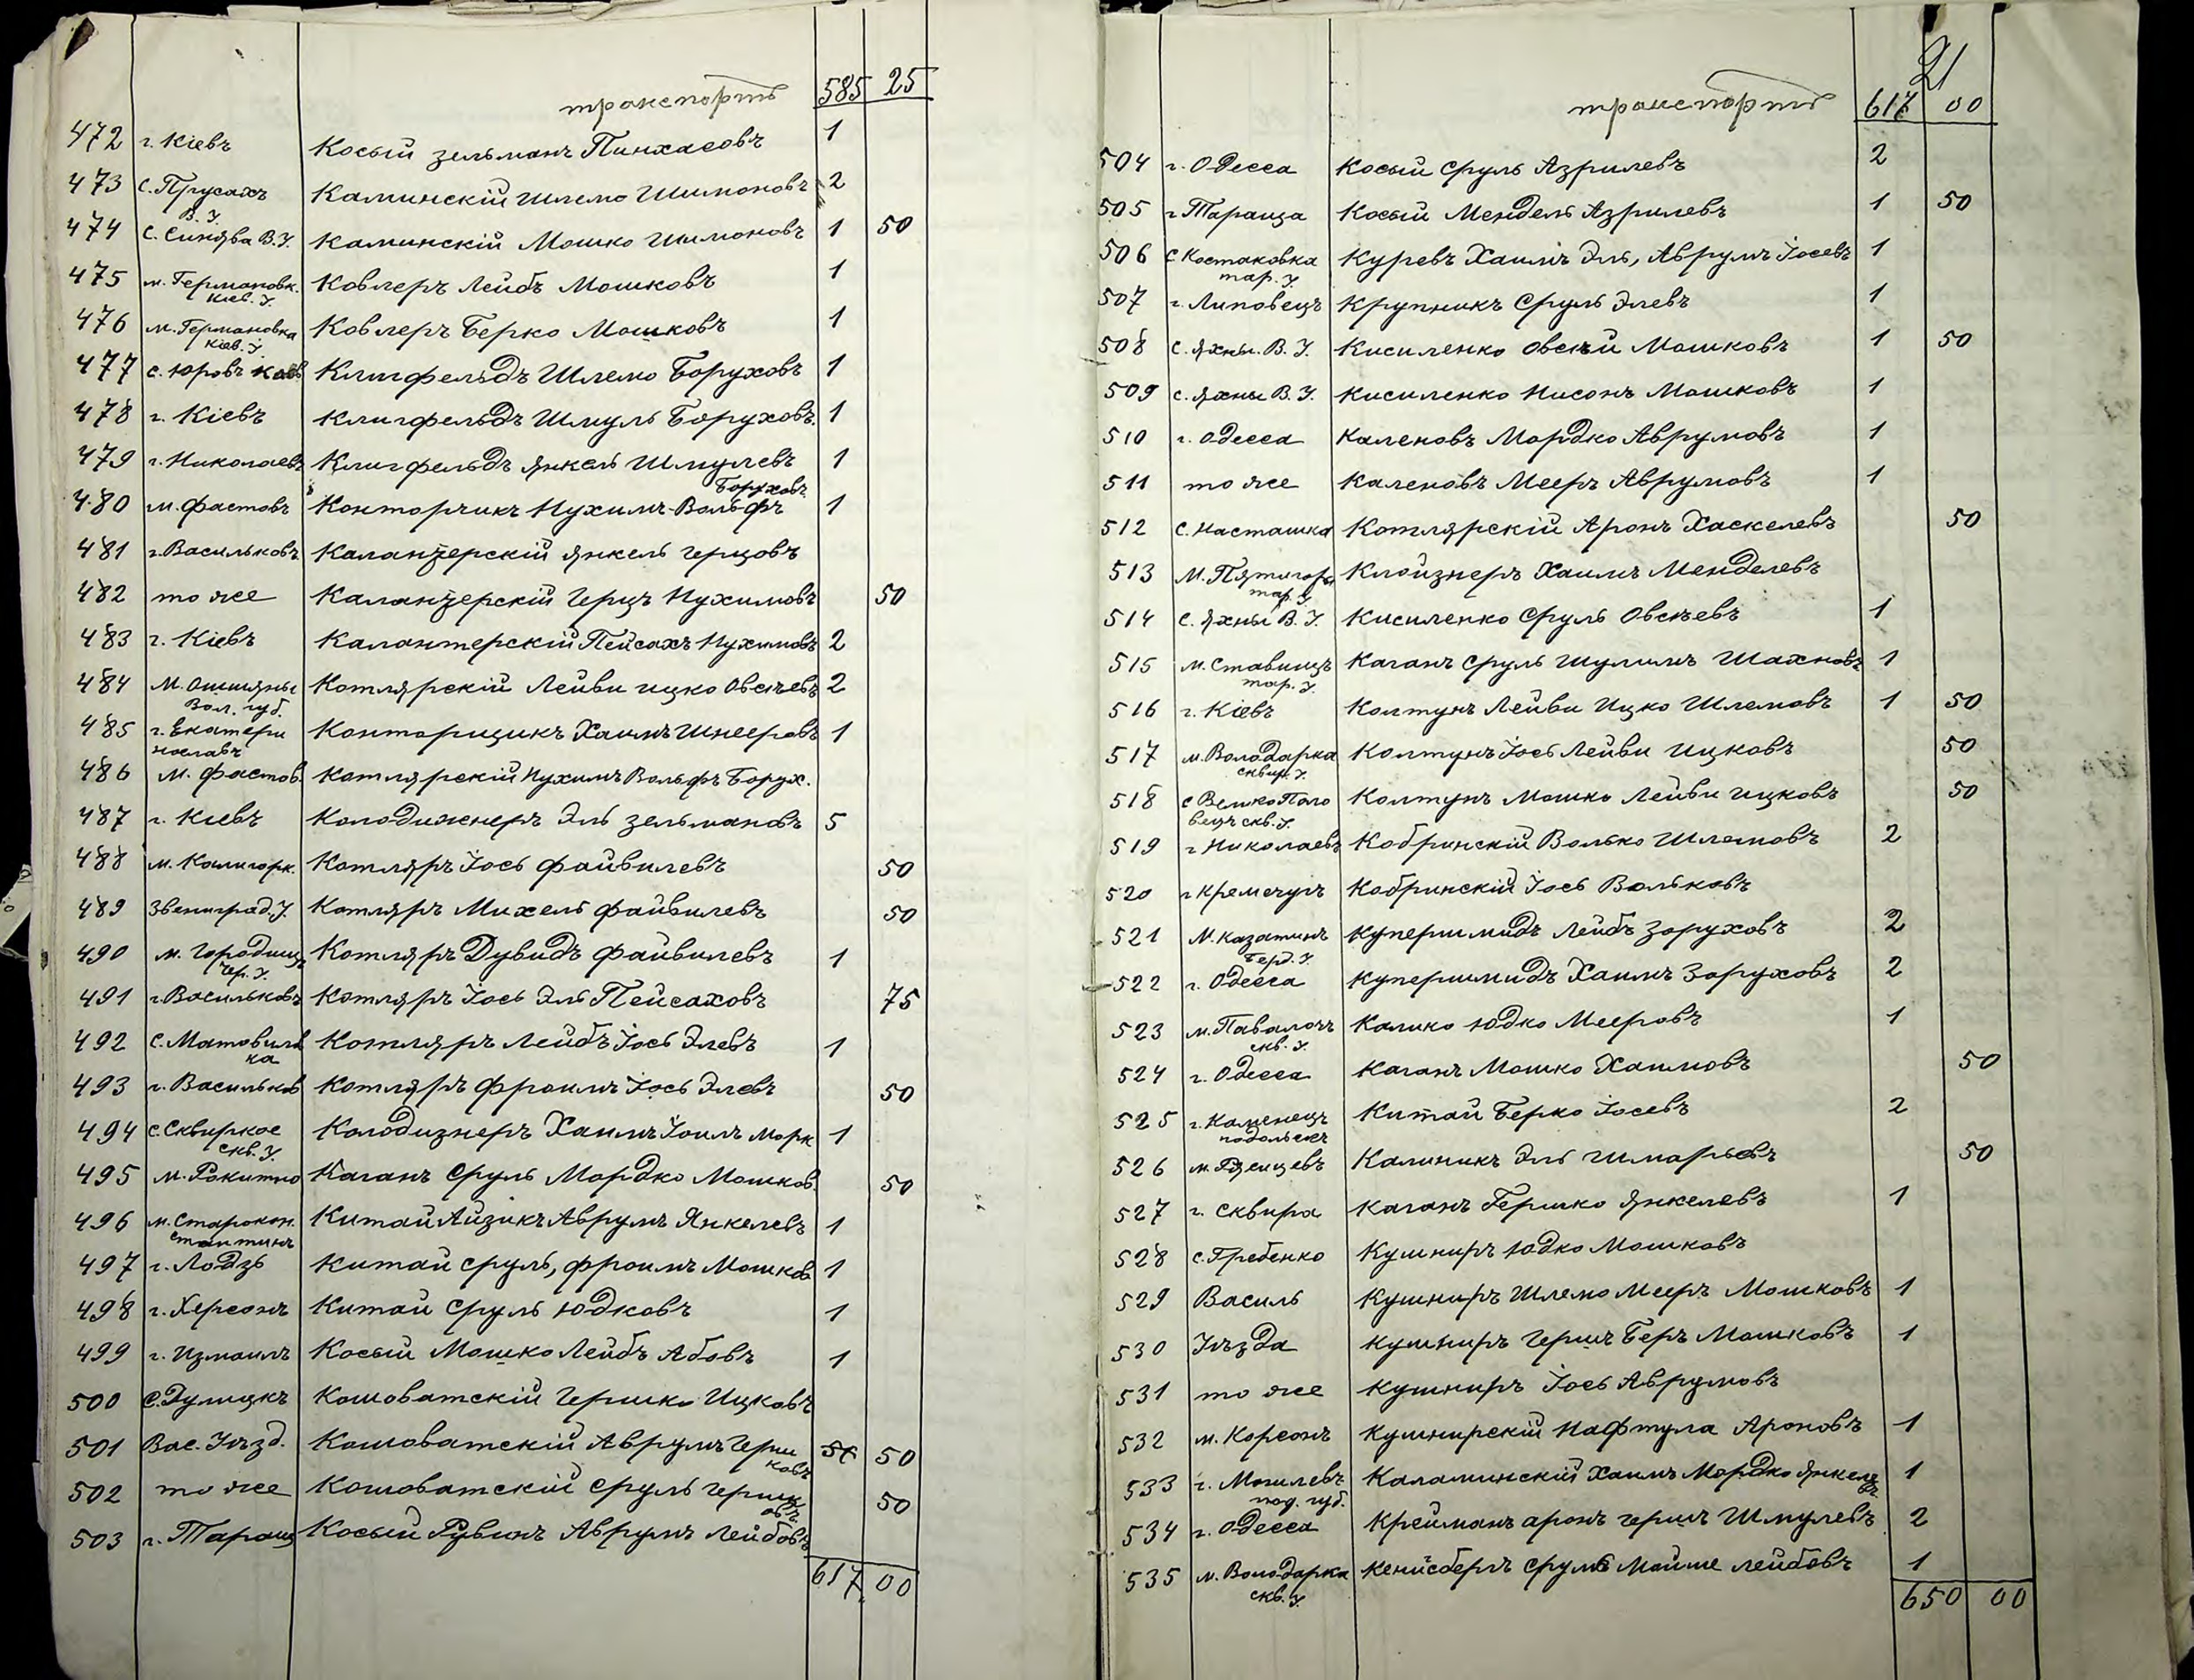 транспортъ 585 25
472 г. Кіевъ Косый Зельманъ Пинхасовъ 1
473 с. Прусахъ Каминскій Шлемо Шимоновъ 2
В. У.
474 с. Синява В. У. Каминскій Мошко Шимоновъ 1 50
475 м. Германовк. Ковлеръ Лейбъ Мошковъ 1
Кіев. У.
476 м. Германовка Ковлеръ Берко Мошковъ 1
Кіев. У.
477 с. Юровъ Клигфельдъ Шлемо Боруховъ 1
478 г. Кіевъ Клигфельдъ Шмуль Боруховъ 1
479 г. Николаевъ Клигфельдъ Янкель Шмулевъ 1
Боруховъ
480 м. Фастовъ Конторчикъ Нухимъ-Вольфъ 1
481 г. Васильковъ Калантерскій Янкель Герцовъ
482 то же Калантерскій Герцъ Нухимовъ 50
483 г. Кіевъ Калантерскій Пейсахъ Нухимовъ 2
484 м. Ошмяны Котлярскій Лейви Ицко Овсѣевъ 2
Вол. губ.
485 г. Екатери Конторщикъ Хаимъ Шнееровъ 1
нославъ
486 м. Фастов. Котлярскій Нухимъ Вольфъ Борух.
487 г. Кіевъ Колодижнеръ Эль Зельмановъ 5
488 м. Калигорк. Котляръ Іось Файвилевъ 50
489 Звениград. У. Котляръ Михель Файвилевъ 50
490 м. Городищъ Котляръ Дувидъ Файвилевъ 1
Чер. У.
491 г. Васильковъ Котляръ Іось Эль Пейсаховъ 75
492 с. Матовилів Котляръ Лейбъ Іось Элевъ 1
ка
493 г. Васильков Котляръ Фроимъ Іось Элевъ 50
494 с. Сквиркое Колодизнеръ Хаимъ Іоилъ Морк 1
Скв. У.
495 м. Ракитно Каганъ Сруль Мордко Мошков. 50
496 м. Старокон. Китай Айзикъ Аврумъ Янкелевъ 1
стантинъ
497 г. Лодзь Китай Сруль, Фроимъ Мошков 1
498 г. Херсонъ Китай Сруль Юдковъ 1
499 г. Измаилъ Косый Мошко Лейбъ Абовъ 1
500 с. Дулицкъ Кошоватскій Гершко Ицковъ
501 Вас. Уѣзд. Кошоватскій Аврумъ Герш 50
ковъ
502 то же Кошоватскій Сруль Гершк 50
овъ
503 г. Таращ Косый Рувинъ Аврумъ Лейбовъ
617 00
21
транспортъ 617 00
504 г. Одесса Косый Сруль Азрилевъ 2
505 г. Тараща Косый Мендель Азрилевъ 1 50
506 с. Костаковка Куревъ Хаимъ Эль, Аврумъ Іосевъ 1
тар. У.
507 г. Липовецъ Крупникъ Сруль Элевъ 1
508 с. Яхны. В. У. Кисиленко Овсѣй Мошковъ 1 50
509 с. Яхны В. У. Кисиленко Нисонъ Мошковъ 1
510 г. Одесса Каленовъ Мордко Аврумовъ 1
511 то же Каленовъ Мееръ Аврумовъ 1
512 с. Насташка Котлярскій Аронъ Хаскелевъ 50
513 м. Пятигоры Клойзнеръ Хаимъ Менделевъ
тар. У.
514 с. Яхны В. У. Кисиленко Сруль Овсѣевъ 1
515 м. Ставищъ Каганъ Сруль Шулимъ Шахновъ 1
тар. У.
516 г. Кіевъ Колтунъ Лейви Ицко Шлемовъ 1 50
517 м. Володарка Колтунъ Іось Лейви Ицковъ 50
сквир. У.
518 с. Велико Поло Колтунъ Мошко Лейви Ицковъ 50
вецъ скв. У.
519 г. Николаевъ Кобринскій Волько Шлемовъ 2
520 г. Кремечугъ Кобринскій Іось Вольковъ
521 м. Казатинъ Купершмидъ Лейбъ Заруховъ 2
Берд. У.
522 г. Одесса Купершмидъ Хаимъ Заруховъ 2
523 м. Паволочъ Калико Юдко Мееровъ 1
скв. У.
524 г. Одесса Каганъ Мошко Хаимовъ 50
525 г. Каменецъ Китай Берко Іосевъ 2
подольскъ
526 м. Калиникъ Эль Шмарьевъ 50
527 г. Сквира Каганъ Гершко Янкелевъ 1
528 с. Гребенко Кушниръ Юдко Мошковъ
529 Василь Кушниръ Шлемо Мееръ Мошковъ 1
530 Уѣзда Кушниръ Гершъ Беръ Мошковъ 1
531 то же Кушниръ Іось Аврумовъ
532 м. Корсонъ Кушнирскій Нафтула Ароновъ 1
533 г. Могилевъ Каламинскій Хаимъ Мордко Янкелев 1
под. губ. ъ
534 г. Одесса Крейманъ Аронъ Гершъ Шмулевъ 2
535 м. Володарка Кенигсбергъ Сруль Мойше Лейбовъ 1
скв. У.
650 00